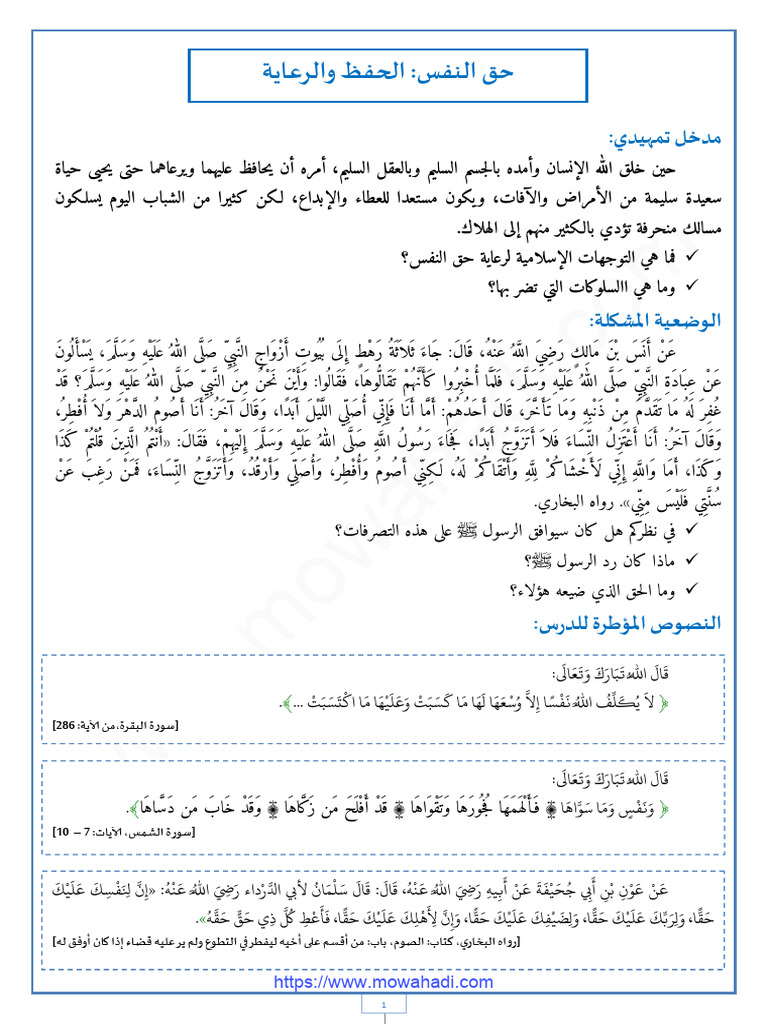 حق النفس: الحفظ والرعاية
مدخل تمهيدي:
حين خلق الله الإنسان وأمده بالجسم السليم وبالعقل السليم، أمره أن يحافظ عليهما ويرعاهما حتى يحيى حياة
سعيدة سليمة من الأمراض والآفات، ويكون مستعدا للعطاء والإبداع، لكن كثيرا من الشباب اليوم يسلكون
مسالك منحرفة تؤدي بالكثير منهم إلى الهلاك.
✓ فما هي التوجهات الإسلامية لرعاية حق النفس؟
✓ وما هي االسلوكات التي تضر بها؟
الوضعية المشكلة:
عَنْ أَنَسِ بْنِ مَالِكٍ رَضِيَ اللَّهُ عَنْهُ، قَالَ: جَاءَ ثَلَاثَةُ رَهْطٍ إِلَى بُيُوتِ أَزْوَاجِ النَّبِيِّ صَلَّى اللهُ عَلَيْهِ وَسَلَّمَ، يَسْأَلُونَ
عَنْ عِبَادَةِ النَّبِيِّ صَلَّى اللهُ عَلَيْهِ وَسَلَّمَ، فَلَمَّا أُخْبِرُوا كَأَنَّهُمْ تَقَالُّوهَا، فَقَالُوا: وَأَيْنَ نَحْنُ مِنَ النَّبِيِّ صَلَّى اللهُ عَلَيْهِ وَسَلَّمَ؟ قَدْ
غُفِرَ لَهُ مَا تَقَدَّمَ مِنْ ذَنْبِهِ وَمَا تَأَخَّرَ، قَالَ أَحَدُهُمْ: أَمَّا أَنَا فَإِنِّي أُصَلِّي اللَّيْلَ أَبَدًا، وَقَالَ آخَرُ: أَنَا أَصُومُ الدَّهْرَ وَلَا أُفْطِرُ،
وَقَالَ آخَرُ: أَنَا أَعْتَزِلُ النِّسَاءَ فَلَا أَتَزَوَّجُ أَبَدًا، فَجَاءَ رَسُولُ اللَّهِ صَلَّى اللهُ عَلَيْهِ وَسَلَّمَ إِلَيْهِمْ، فَقَالَ: «أَنْتُمُ الَّذِينَ قُلْتُمْ كَذَا
وَكَذَا، أَمَا وَاللَّهِ إِنِّي لَأَخْشَاكُمْ لِلَّهِ وَأَتْقَاكُمْ لَهُ، لَكِنِّي أَصُومُ وَأُفْطِرُ، وَأُصَلِّي وَأَرْقُدُ، وَأَتَزَوَّجُ النِّسَاءَ، فَمَنْ رَغِبَ عَنْ
سُنَّتِي فَلَيْسَ مِنِّي». رواه البخاري.
✓ في نظركم هل كان سيوافق الرسول ﷺ على هذه التصرفات؟
✓ ماذا كان رد الرسول ﷺ؟
✓ وما الحق الذي ضيعه هؤلاء؟
النصوص المؤطرة للدرس:
قَالَ اللهُ تَبَارَكَ وَتَعَالَى:
﴿ لاَ يُكَلِّفُ اللهُ نَفْسًا إِلاَّ وُسْعَهَا لَهَا مَا كَسَبَتْ وَعَلَيْهَا مَا اكْتَسَبَتْ ...﴾.
[سورة البقرة، من الآية: 286]
قَالَ اللهُ تَبَارَكَ وَتَعَالَى:
﴿ وَنَفْسٍ وَمَا سَوَّاهَا ۞ فَأَلْهَمَهَا فُجُورَهَا وَتَقْوَاهَا ۞ قَدْ أَفْلَحَ مَن زَكَّاهَا ۞ وَقَدْ خَابَ مَن دَسَّاهَا﴾.
[سورة الشمس، الآيات: 7 – 10]
عَنْ عَوْنِ بْنِ أَبِي جُحَيْفَةَ عَنْ أَبِيهِ رَضِيَ اللهُ عَنْهُ، قَالَ: قَالَ سَلْمَانُ لأبي الدَّرْداء رَضِيَ اللهُ عَنْهُ: «إِنَّ لِنَفْسِكَ عَلَيْكَ
حَقًّا، وَلِرَبِّكَ عَلَيْكَ حَقًّا، وَلِضَيْفِكَ عَلَيْكَ حَقًّا، وَإِنَّ لِأَهْلِكَ عَلَيْكَ حَقًّا، فَأَعْطِ كُلَّ ذِي حَقٍّ حَقَّهُ».
[رواه البخاري، كتاب: الصوم، باب: من أقسم على أخيه ليفطر في التطوع ولم ير عليه قضاء إذا كان أوفق له]
https://www.mowahadi.com
1